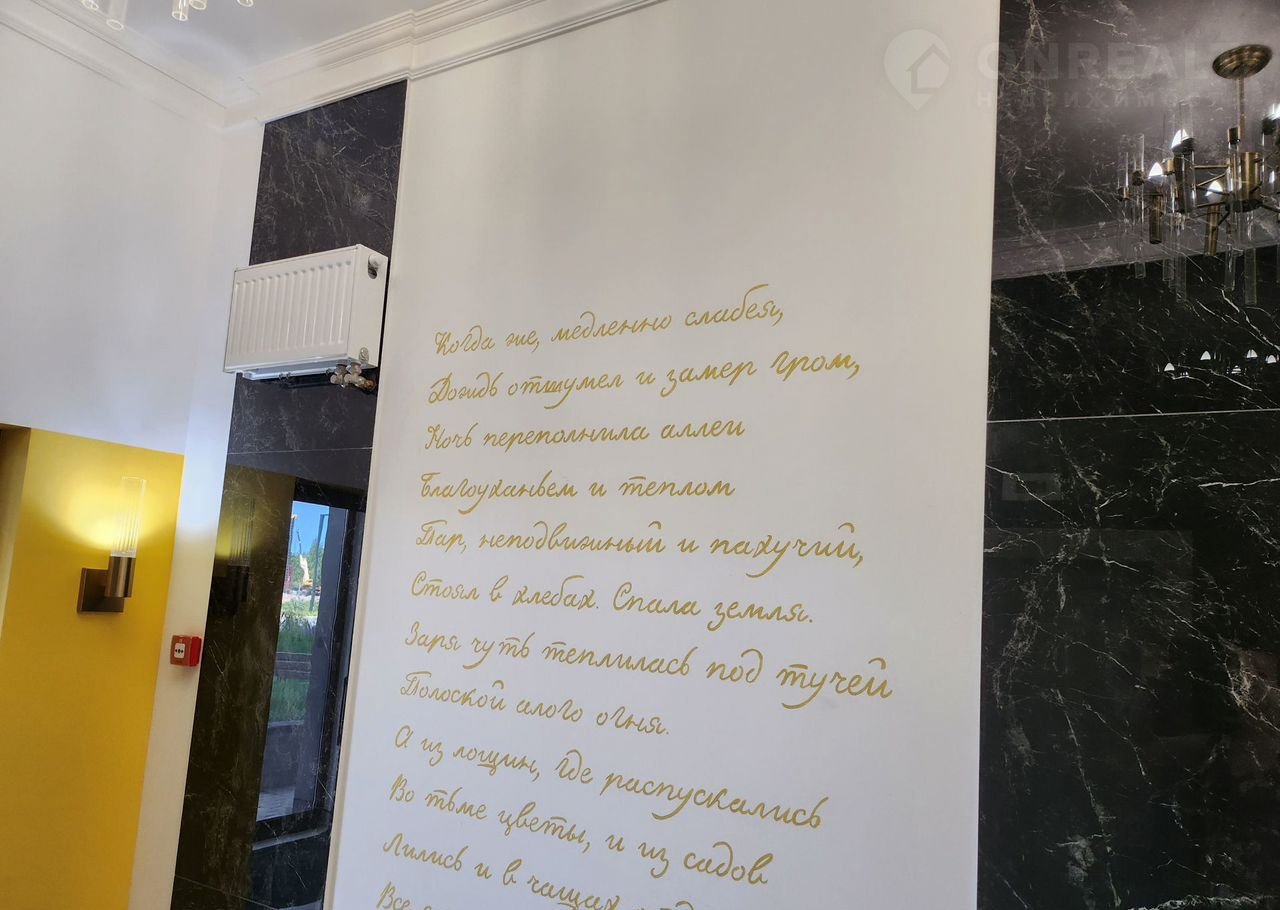 ONREAL
Недвижимос
Когда же, медленно слабея,
Дождь отшумел и замер гром,
Ночь переполнила аллеи
Благоуханьем и теплом
Пар, неподвижный и пахучий,
Стоял в хлебах. Спала земля.
Заря чуть теплилась под тучей
Полоской алого огня.
А из лощин, где распускались
Во тьме цветы, и из садов
Лились и в чащах
Все